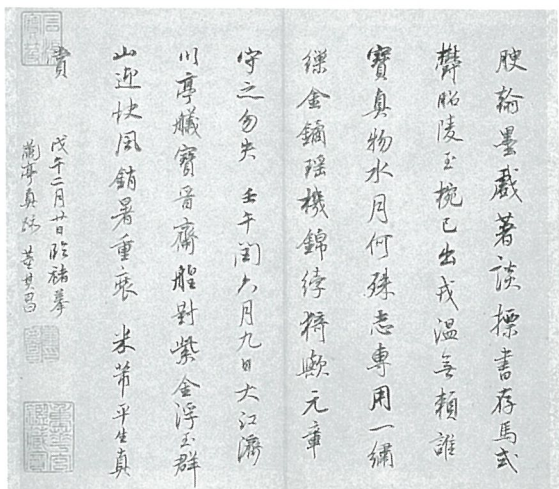 腴翰墨戲著談摽書存馬式
鬱昭陵玉椀已出戎溫無賴誰
寶真物水月何殊志專用一繡
繅金鐍瑶機錦綍猗歟元章
守之勿失 壬午閏六月九日大江濟
川亭艤寶晉齋艎對紫金浮玉群
山迎快風銷暑重裝 米芾平生真
賞
戊午二月廿日臨褚摹
蘭亭真跡 董其昌